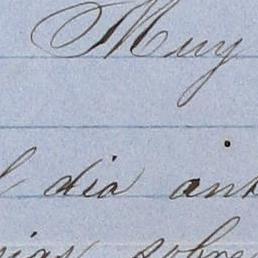 Muy
l dia ant
sias sobre